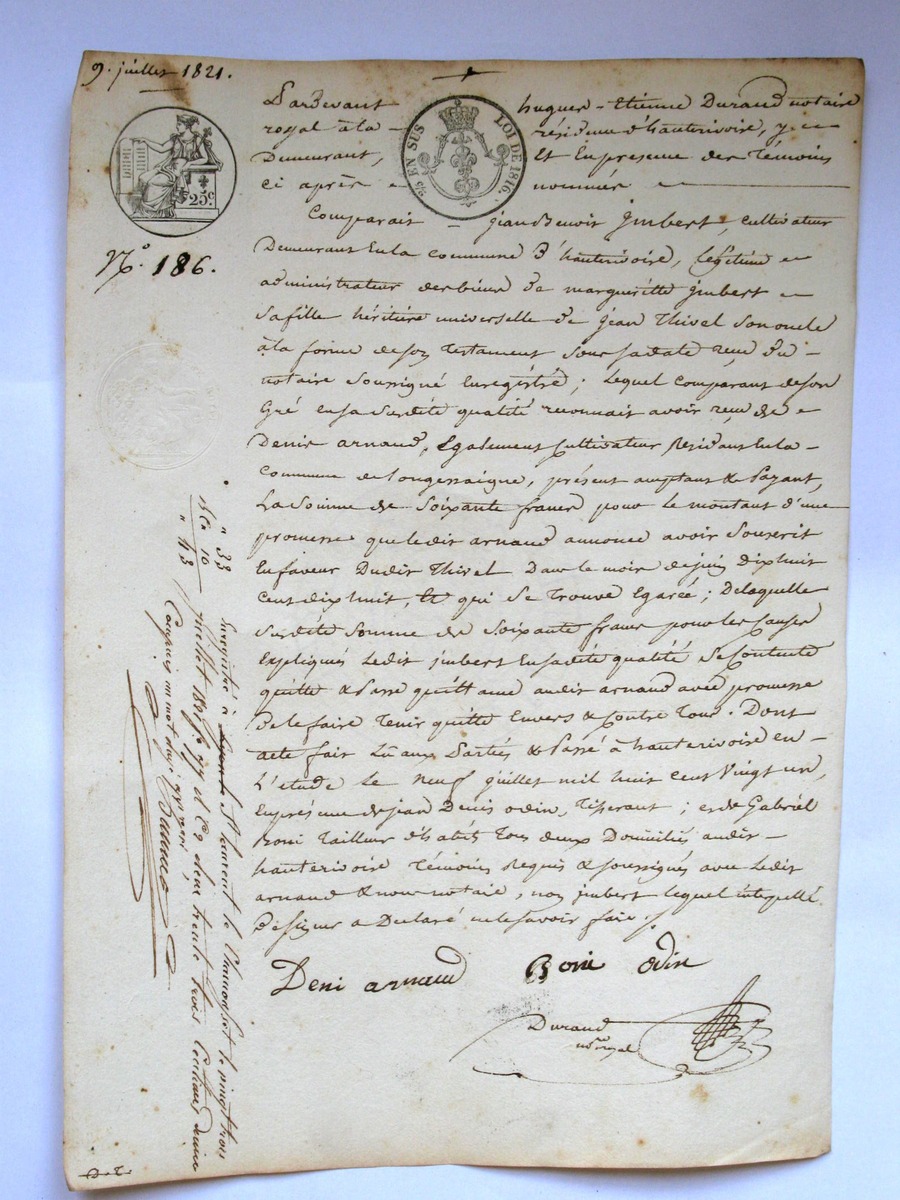 9. juillet 1821.
25 EN SUS LOI DE 1816.
25c
N.o 186.
Pardevant hugues-Etienne Durand notaire
royal à la résidence d'hauterivoire, y
Demeurant, Et En presence des Témoins
ci après nommés
Comparait jean Benoit jmbert, cultivateur
Demeurant En la commune d'hauterivoire, légitime
administrateur des biens de margueritte jmbert
sa fille héritière universelle de jean Thivel son oncle
à la forme de son Testament sous sa date reçu du
notaire soussigné Enregistré; lequel comparant de son
Gré en sa susdite qualité reconnait avoir reçu de
Denis arnaud, Egalement Cultivateur Residant En la
Commune de longessaigne, présent acceptant & Payant,
La Somme de Soixante francs pour le montant d'une
promesse que ledit arnaud annonce avoir Souscrit
En faveur Dudit Thivel Dans le mois de juin Dix huit
Cent dix huit, Et qui Se Trouve Egarée; De laquelle
susdite Somme de Soixante francs pour les Causes
Expliqués Ledit jmbert En sadite qualité Se Contente
quitte & Passe quittance audit arnaud avec promesse
De le faire Tenir quitte Envers & Contre Tous. Dont
acte fait Lû aux Parties & Passé à hauterivoire en
L'étude Le neuf juillet mil huit cent Vingt un,
En présence de jean Denis odin, Tisserant; et de Gabriël
boni Tailleur d'habits Tous deux Domiciliés audit
hauterivoire Témoins Requis & soussignés avec Ledit
arnaud & nous notaire, non jmbert lequel interpellé
De signer a Déclaré ne le savoir faire
Deni arnaud Boni odin
Durand
nre royal
Enregistré à St Laurent de Chamousset le vingt trois
juillet 1821 fo 77 et Co deux trente trois Centimes
Compris un mot
" 33
10
" 43